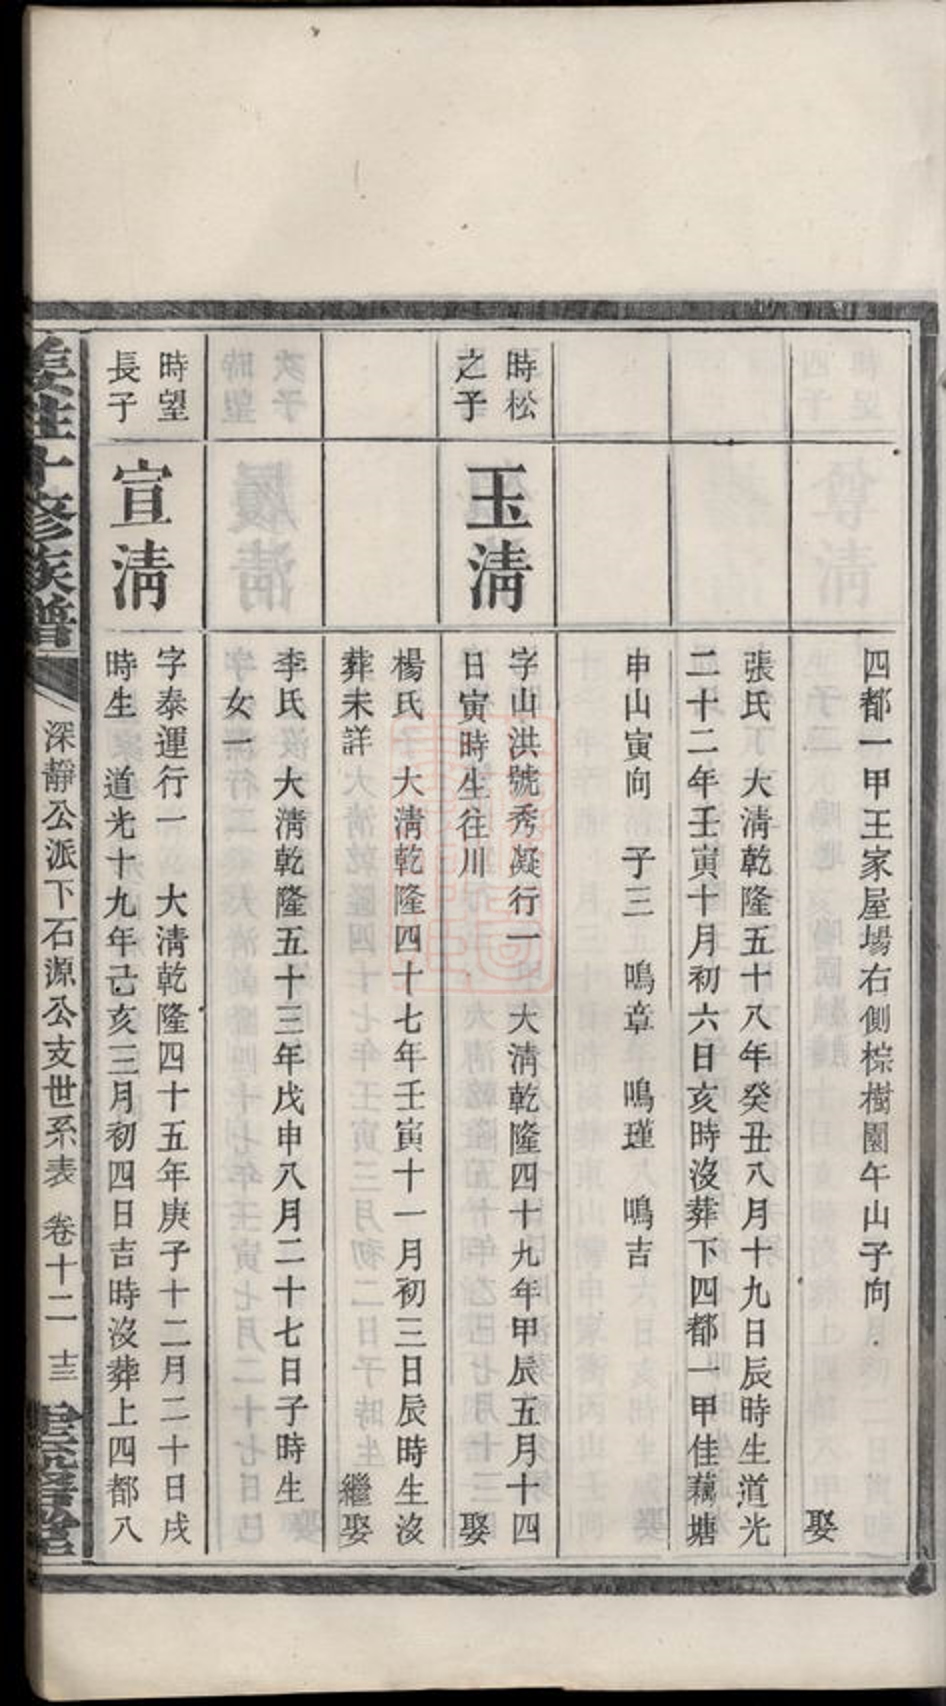 四都一甲王家屋場右側棕樹園午山子向
娶
張氏　大清乾隆五十八年癸丑八月十九日辰時生道光
二十二年壬寅十月初六日亥時沒葬下四都一甲佳藕塘
申山寅向　子三　鳴章　鳴瑾　鳴吉
時松
之子
玉清
字山洪號秀凝行一　大清乾隆四十九年甲辰五月十四
日寅時生往川　娶
楊氏　大清乾隆四十七年壬寅十一月初三日辰時生沒
葬未詳　繼娶
李氏　大清乾隆五十三年戊申八月二十七日子時生
女一
時望
長子
宣清
字泰運行一　大清乾隆四十五年庚子十二月二十日戌
時生　道光十九年己亥三月初四日吉時沒葬上四都八
姜姓十修族譜
深靜公派下石源公支世系表　卷十二　十三